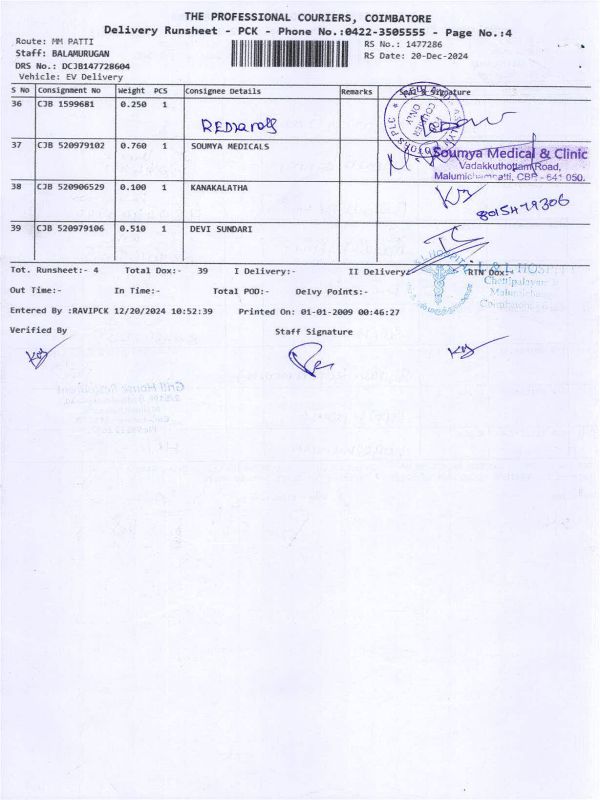 THE PROFESSIONAL COURIERS, COIMBATORE
Delivery Runsheet - PCK - Phone No.:0422-3505555 - Page No.:4
Route: MM PATTI
RS No.: 1477286
Staff: BALAMURUGAN
RS Date: 20-Dec-2024
DRS No.: DCJB147728604
Vehicle: EV Delivery
S No Consignment No Weight PCS Consignee Details Remarks Seal & Signature
36 CJB 1599681 0.250 1
37 CJB 520979102 0.760 1 SOUMYA MEDICALS
Soumya Medical & Clinic
Vadakkuthottam Road,
Malumichampatti, CBE - 641 050.
38 CJB 520906529 0.100 1 KANAKALATHA
8015479306
39 CJB 520979106 0.510 1 DEVI SUNDARI
Tot. Runsheet:- 4 Total Dox:- 39 I Delivery:- II Delivery:- RTN Dox:-
Out Time:- In Time:- Total POD:- Delvy Points:-
Entered By :RAVIPCK 12/20/2024 10:52:39 Printed On: 01-01-2009 00:46:27
Verified By Staff Signature